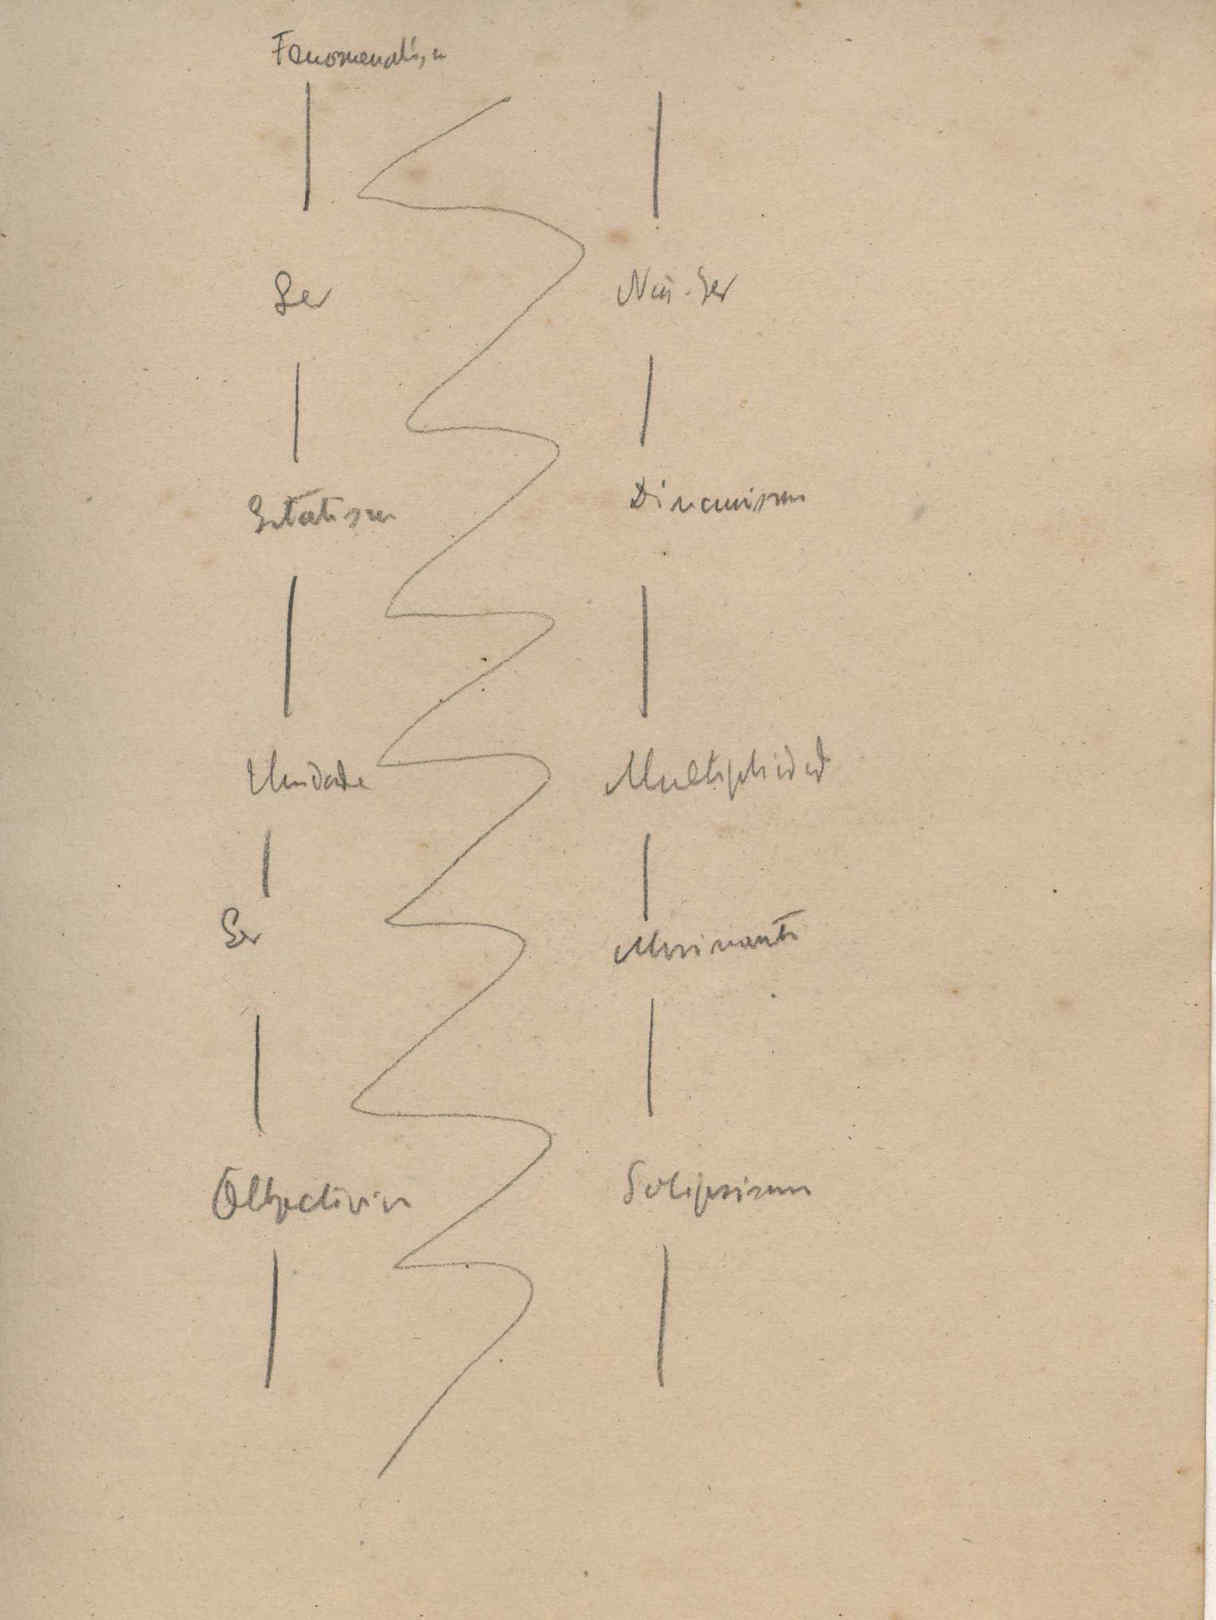 Fenomenalism
Ser Não-Ser
Estatism Dinamismo
Unidade Multiplicidad
Ser Movimento
Objectivis Solipsismo